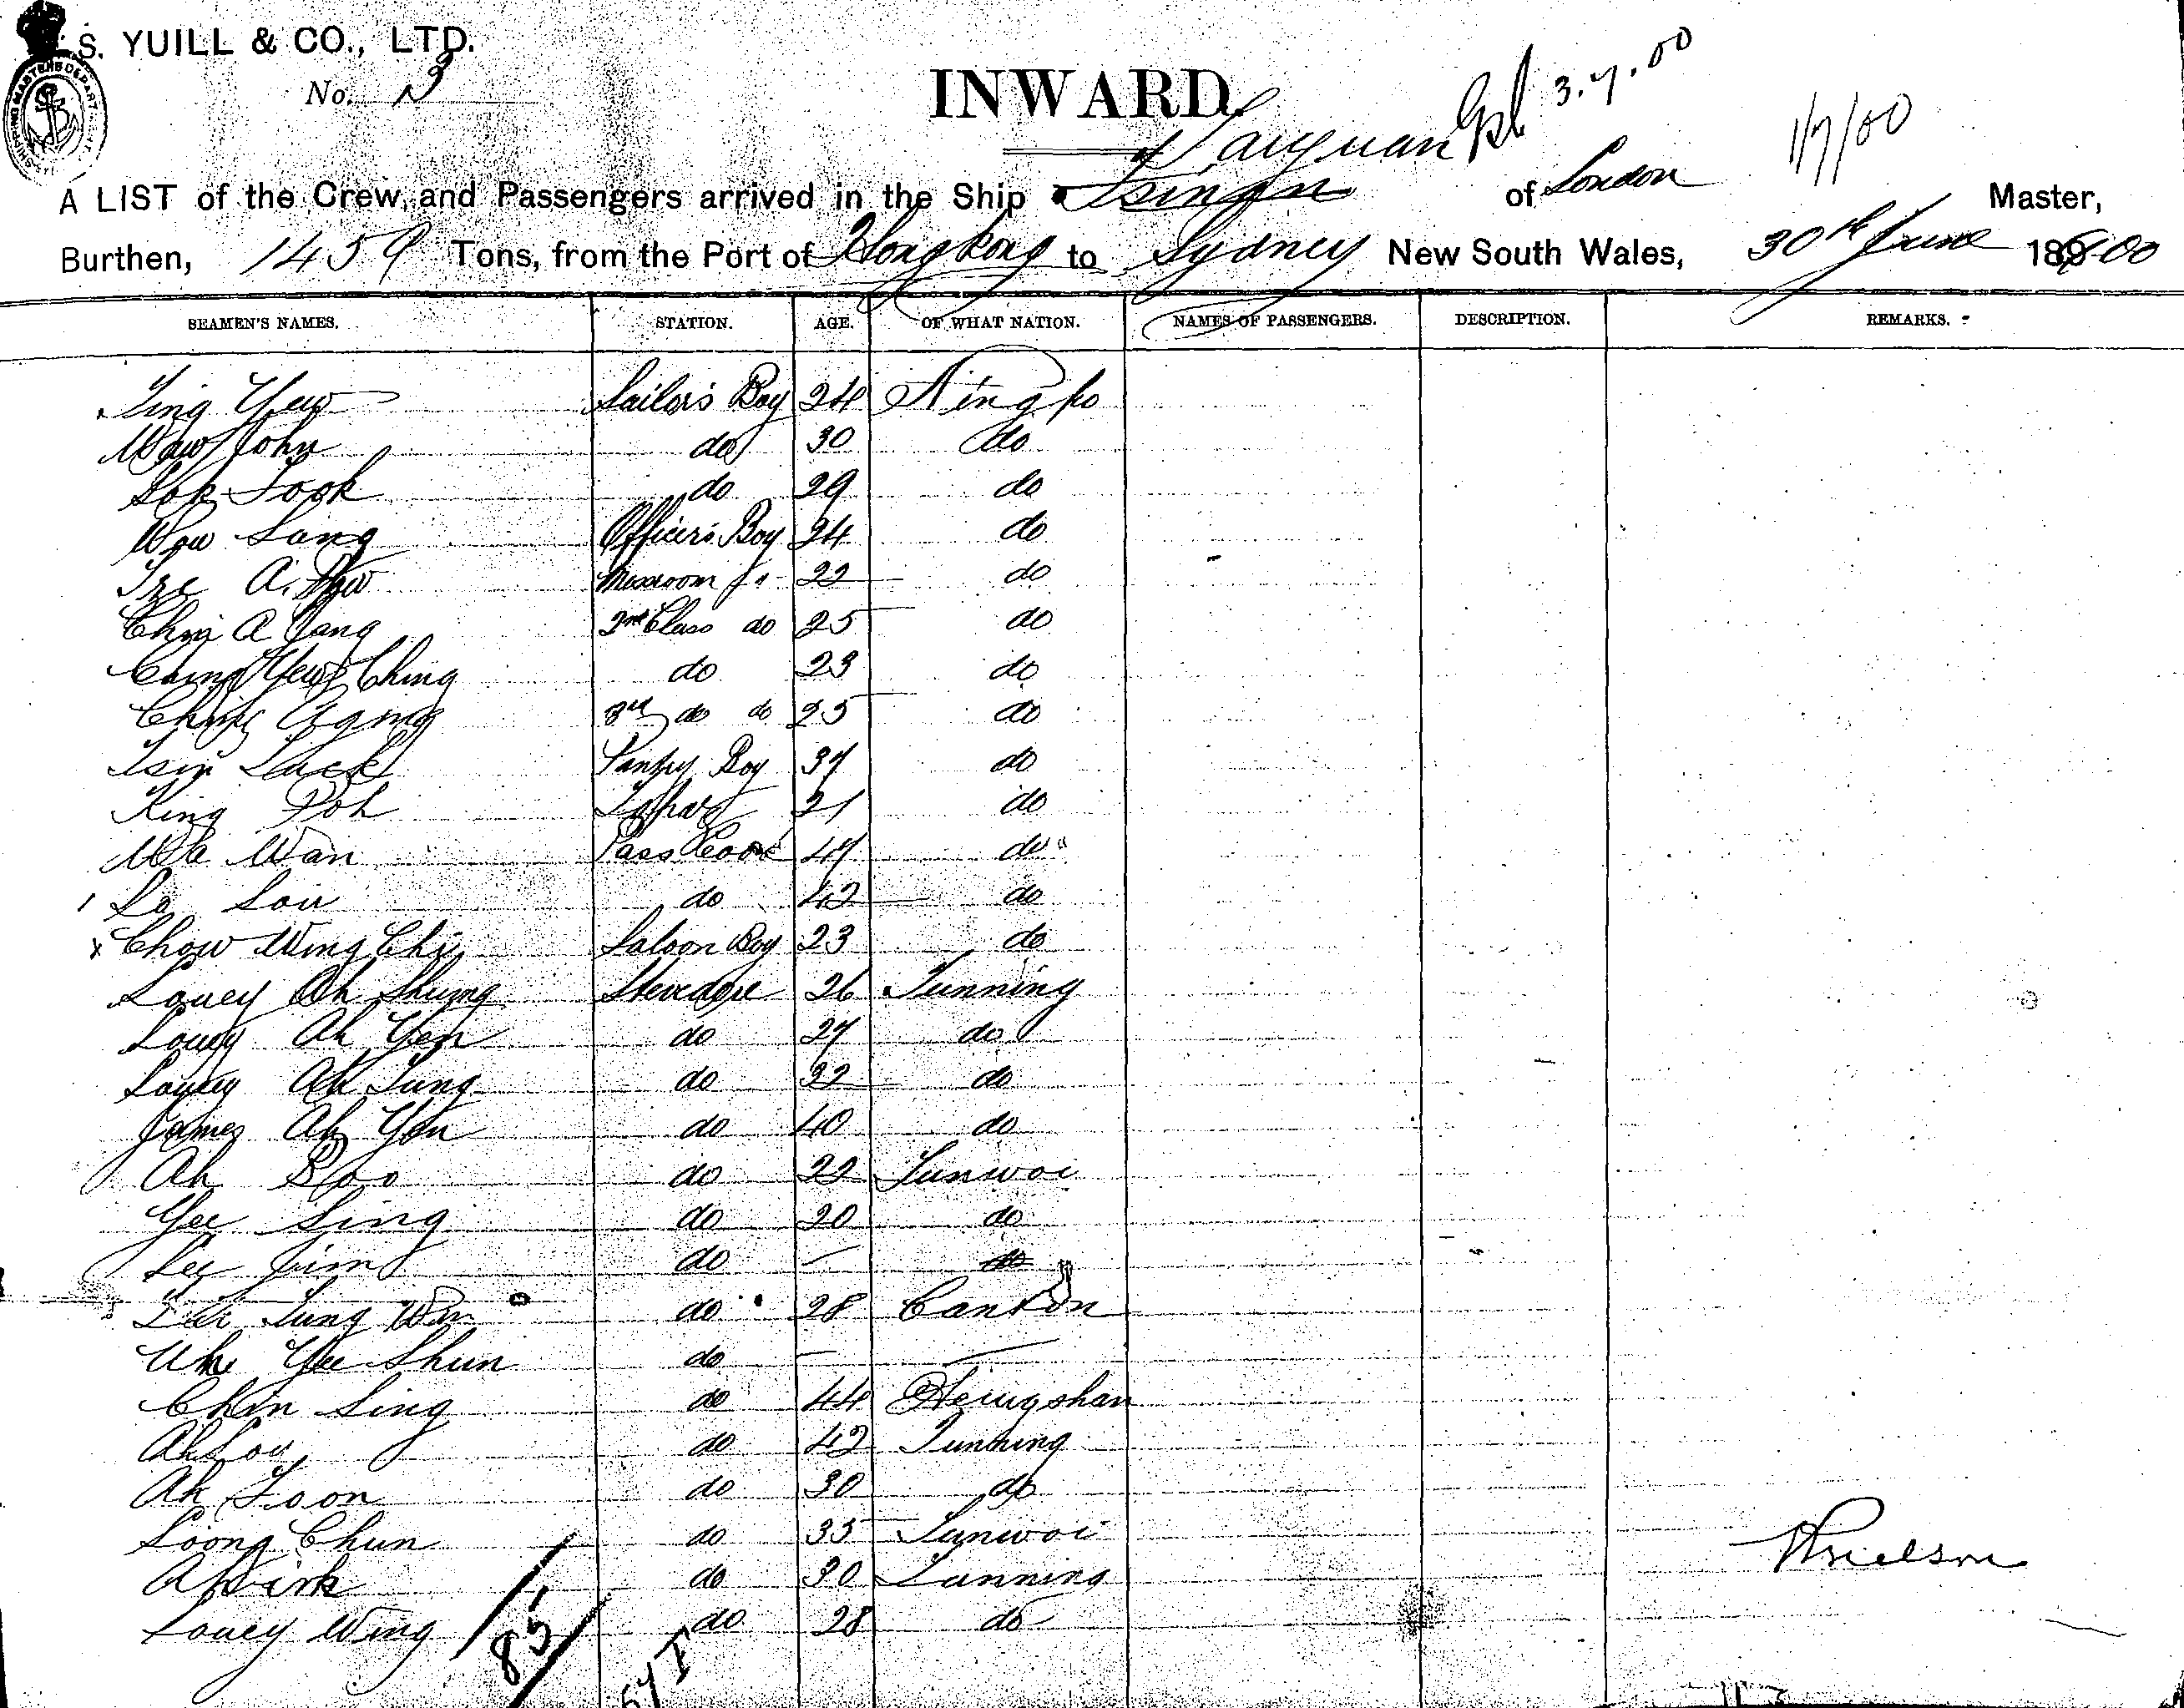 S. YUILL & CO., LTD.
No. 3
INWARD.
3.7.00
1/7/00
Taiyuan
A LIST of the Crew and Passengers arrived in the Ship Tsinan of London Master,
Burthen, 1459 Tons, from the Port of Hongkong to Sydney New South Wales, 30th June 1900
SEAMEN'S NAMES. STATION. AGE. OF WHAT NATION. NAMES OF PASSENGERS. DESCRIPTION. REMARKS.
Ting Yew Sailors Boy 24 Ningpo
Waw John do 30 do
Sok Fook do 29 do
Wow Sang Officers Boy 24 do
Messroom 22 do
2nd Class do 25 do
Ching Yew Ching do 23 do
3rd do do 25 do
Tsin Luck Pantry Boy 37 do
King Poh 21 do
Wan Pass Cook 47 do
Lo Sow do 42 do
x Chow Wing Chi Saloon Boy 23 do
Louey Ah Shung Stevedore 26 Sunning
Louey Ah Yen do 27 do
Louey Ah Sung do 32 do
James Ah Yon do 40 do
Ah Boo do 22 Sunwoi
Yee Sing do 20 do
Lee Jim do – do
Sung do 28 Canton
Yee Shun do –
Chin Sing do 44 Heungshan
Ah Lou do 42 Sunning
Ah Foon do 30 do
Loong Chun do 35 Sunwoi
do 30 Sunning
Louey Wing do 28 do
85